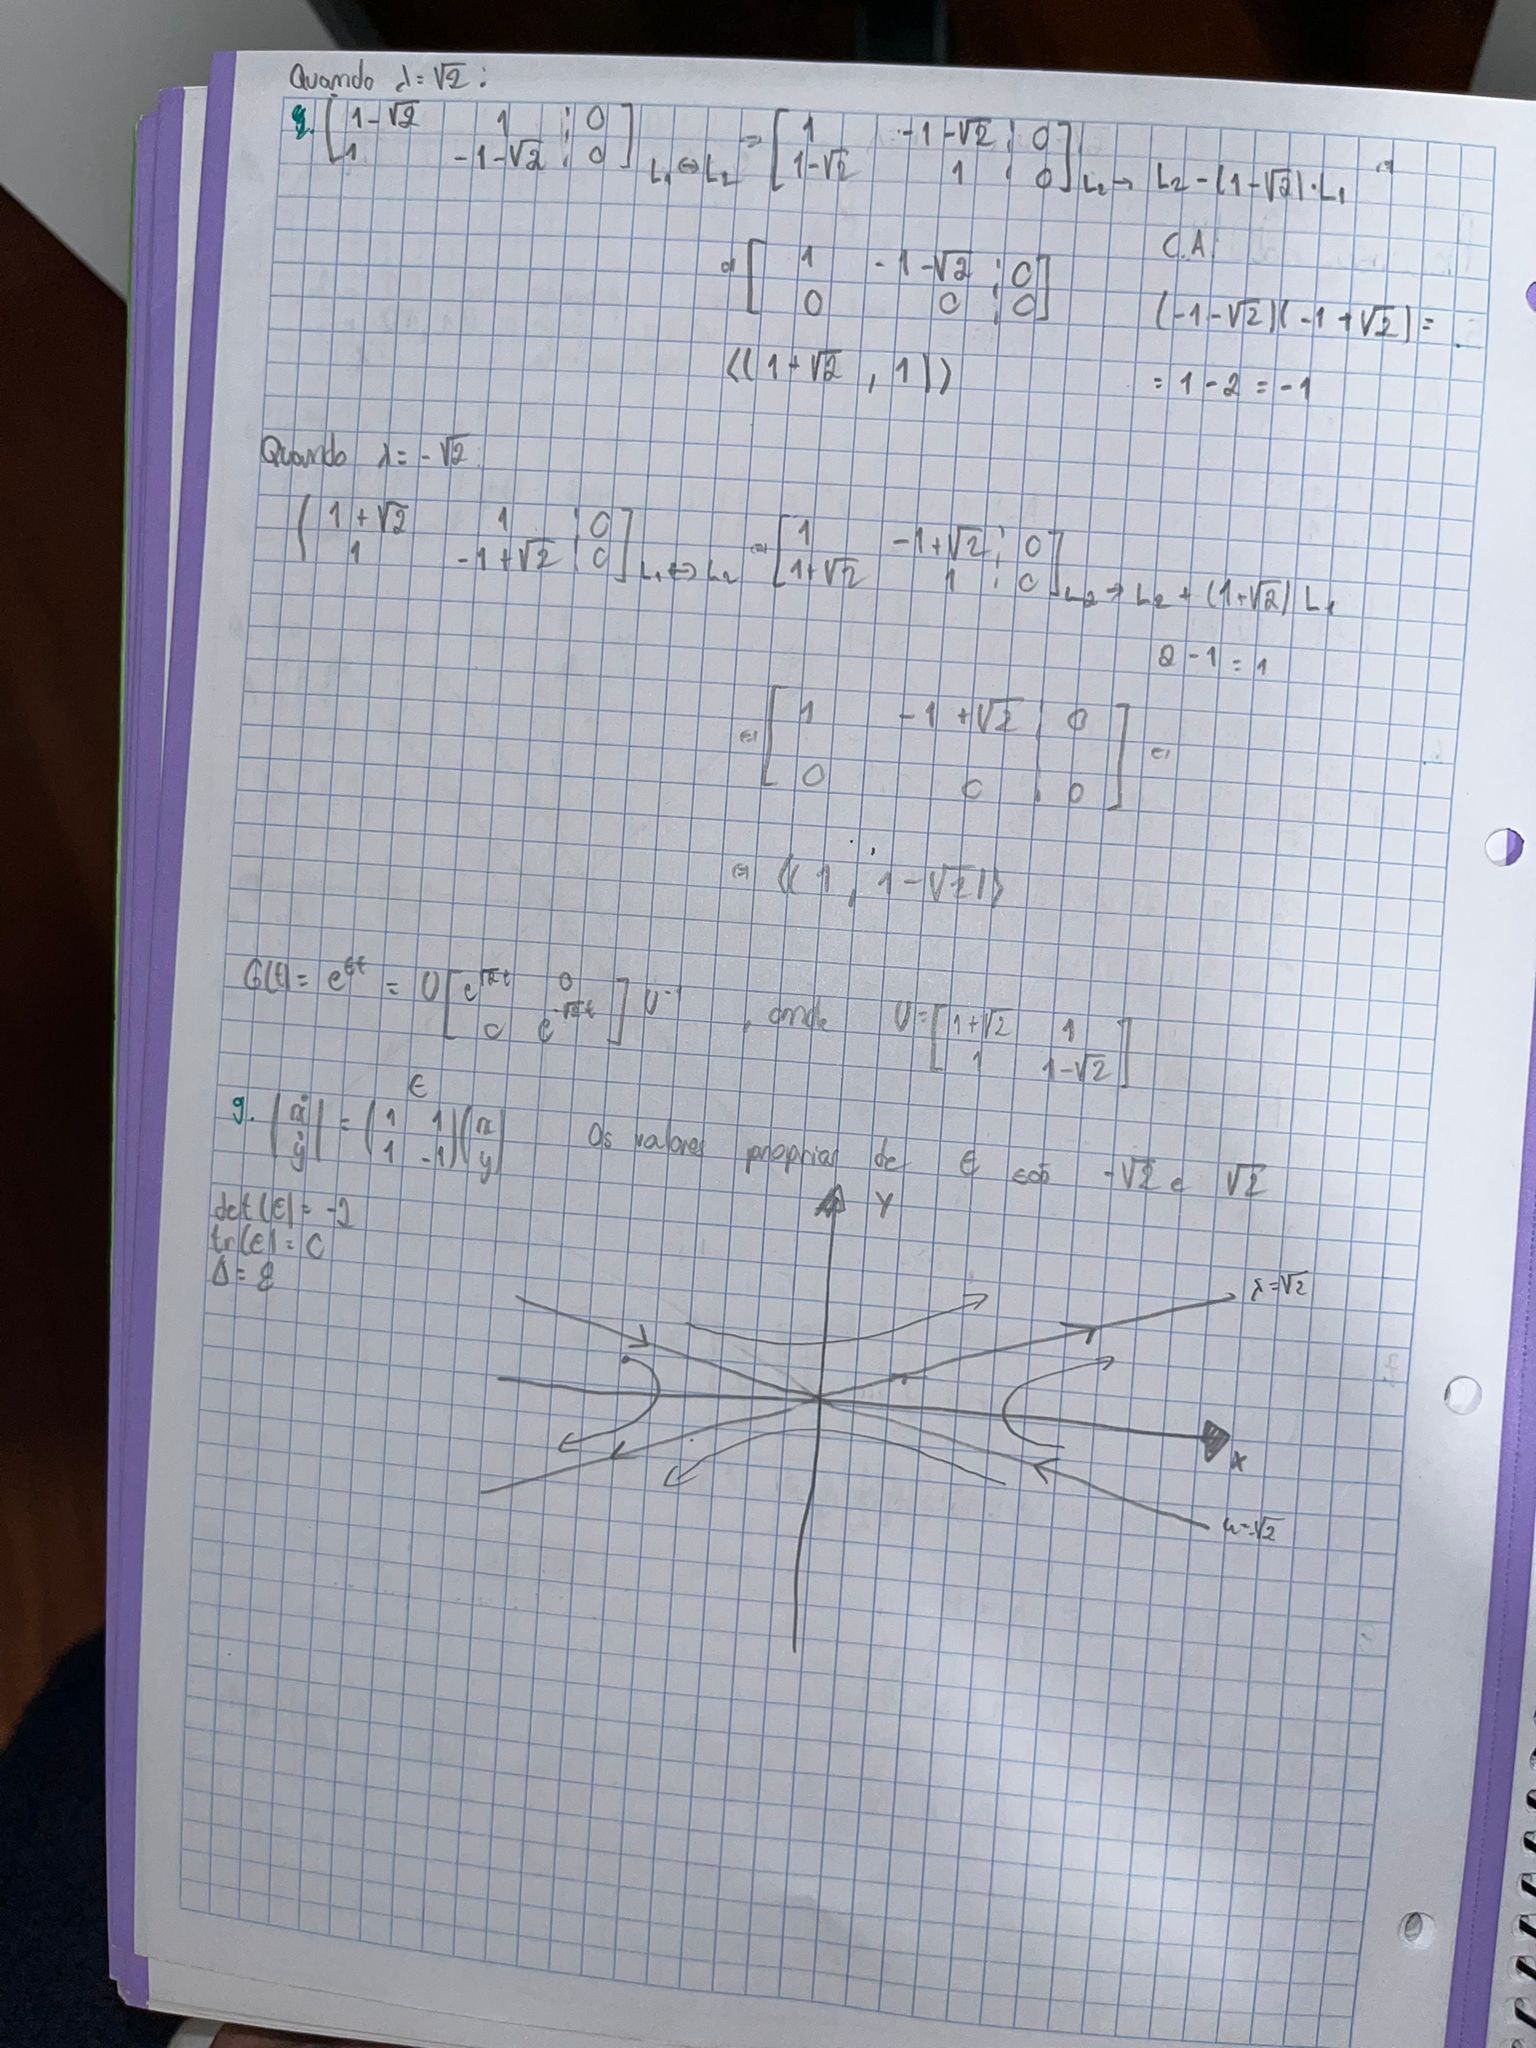 Quando λ = √2 :
[ 1-√2 1 ⋮ 0 ] [ 1 -1-√2 ⋮ 0 ]
[ 1 -1-√2 ⋮ 0 ] L₁ ↔ L₂ [ 1-√2 1 ⋮ 0 ] L₂ → L₂ - (1-√2)·L₁
C.A:
[ 1 -1-√2 ⋮ 0 ]
[ 0 0 ⋮ 0 ] (-1-√2)(-1+√2) =
⟨(1+√2 , 1)⟩ = 1 - 2 = -1
Quando λ = -√2
[ 1+√2 1 ⋮ 0 ] [ 1 -1+√2 ⋮ 0 ]
[ 1 -1+√2 ⋮ 0 ] L₁ ↔ L₂ [ 1+√2 1 ⋮ 0 ] L₂ → L₂ + (1+√2) L₁
2 - 1 = 1
[ 1 -1+√2 | 0 ]
[ 0 0 | 0 ]
⟨(1 , 1-√2)⟩
G(t) = e^{Et} = U [ e^{√2t} 0 ] U⁻¹ , onde U = [ 1+√2 1 ]
[ 0 e^{-√2t} ] [ 1 1-√2 ]
E
g. (ẋ) = (1 1)(x) Os valores proprios de E são -√2 e √2
(ẏ) (1 -1)(y)
det(E) = -2
tr(E) = 0
Δ = 8
y
λ = √2
x
λ = -√2